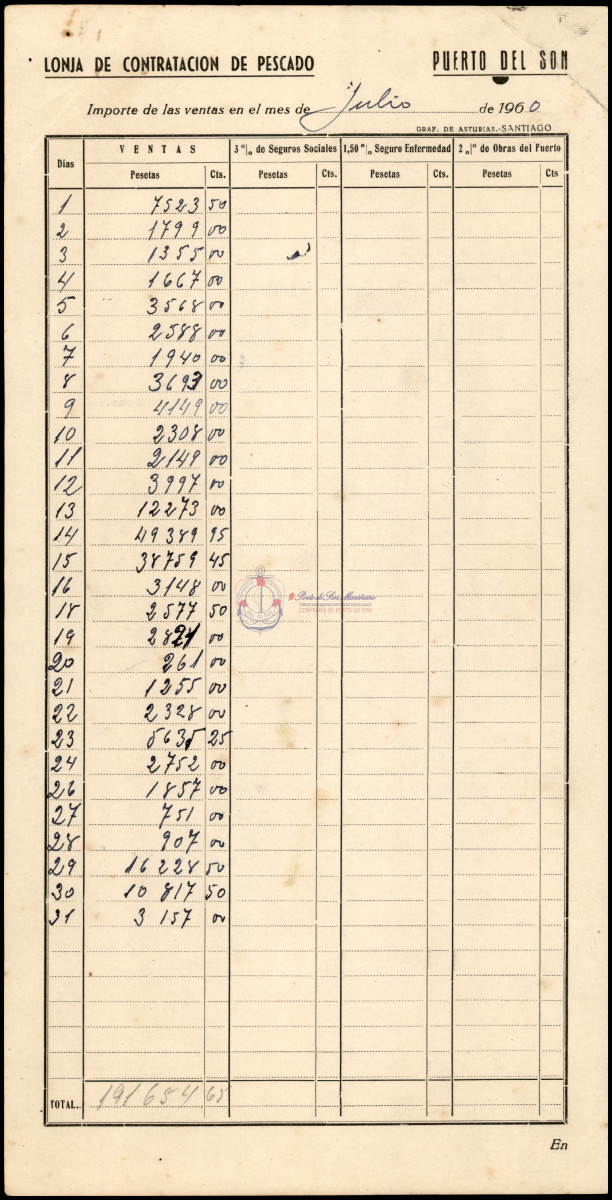 LONJA DE CONTRATACION DE PESCADO PUERTO DEL SON
Importe de las ventas en el mes de Julio de 1960
GRAF. DE ASTURIAS.-SANTIAGO
Días VENTAS 3 º/o de Seguros Sociales 1,50 º/o Seguro Enfermedad 2 º/o de Obras del Puerto
Pesetas Cts. Pesetas Cts. Pesetas Cts. Pesetas Cts
1 7523 50
2 1799 00
3 1355 00
4 1667 00
5 3568 00
6 2588 00
7 1940 00
8 3693 00
9 4149 00
10 2308 00
11 2149 00
12 3997 00
13 12273 00
14 49389 95
15 38759 45
16 3148 00
18 2577 50
19 2821 00
20 261 00
21 1255 00
22 2328 00
23 5635 25
24 2752 00
26 1857 00
27 751 00
28 907 00
29 16228 50
30 10817 50
31 3157 00
TOTAL.. 191654 65
En